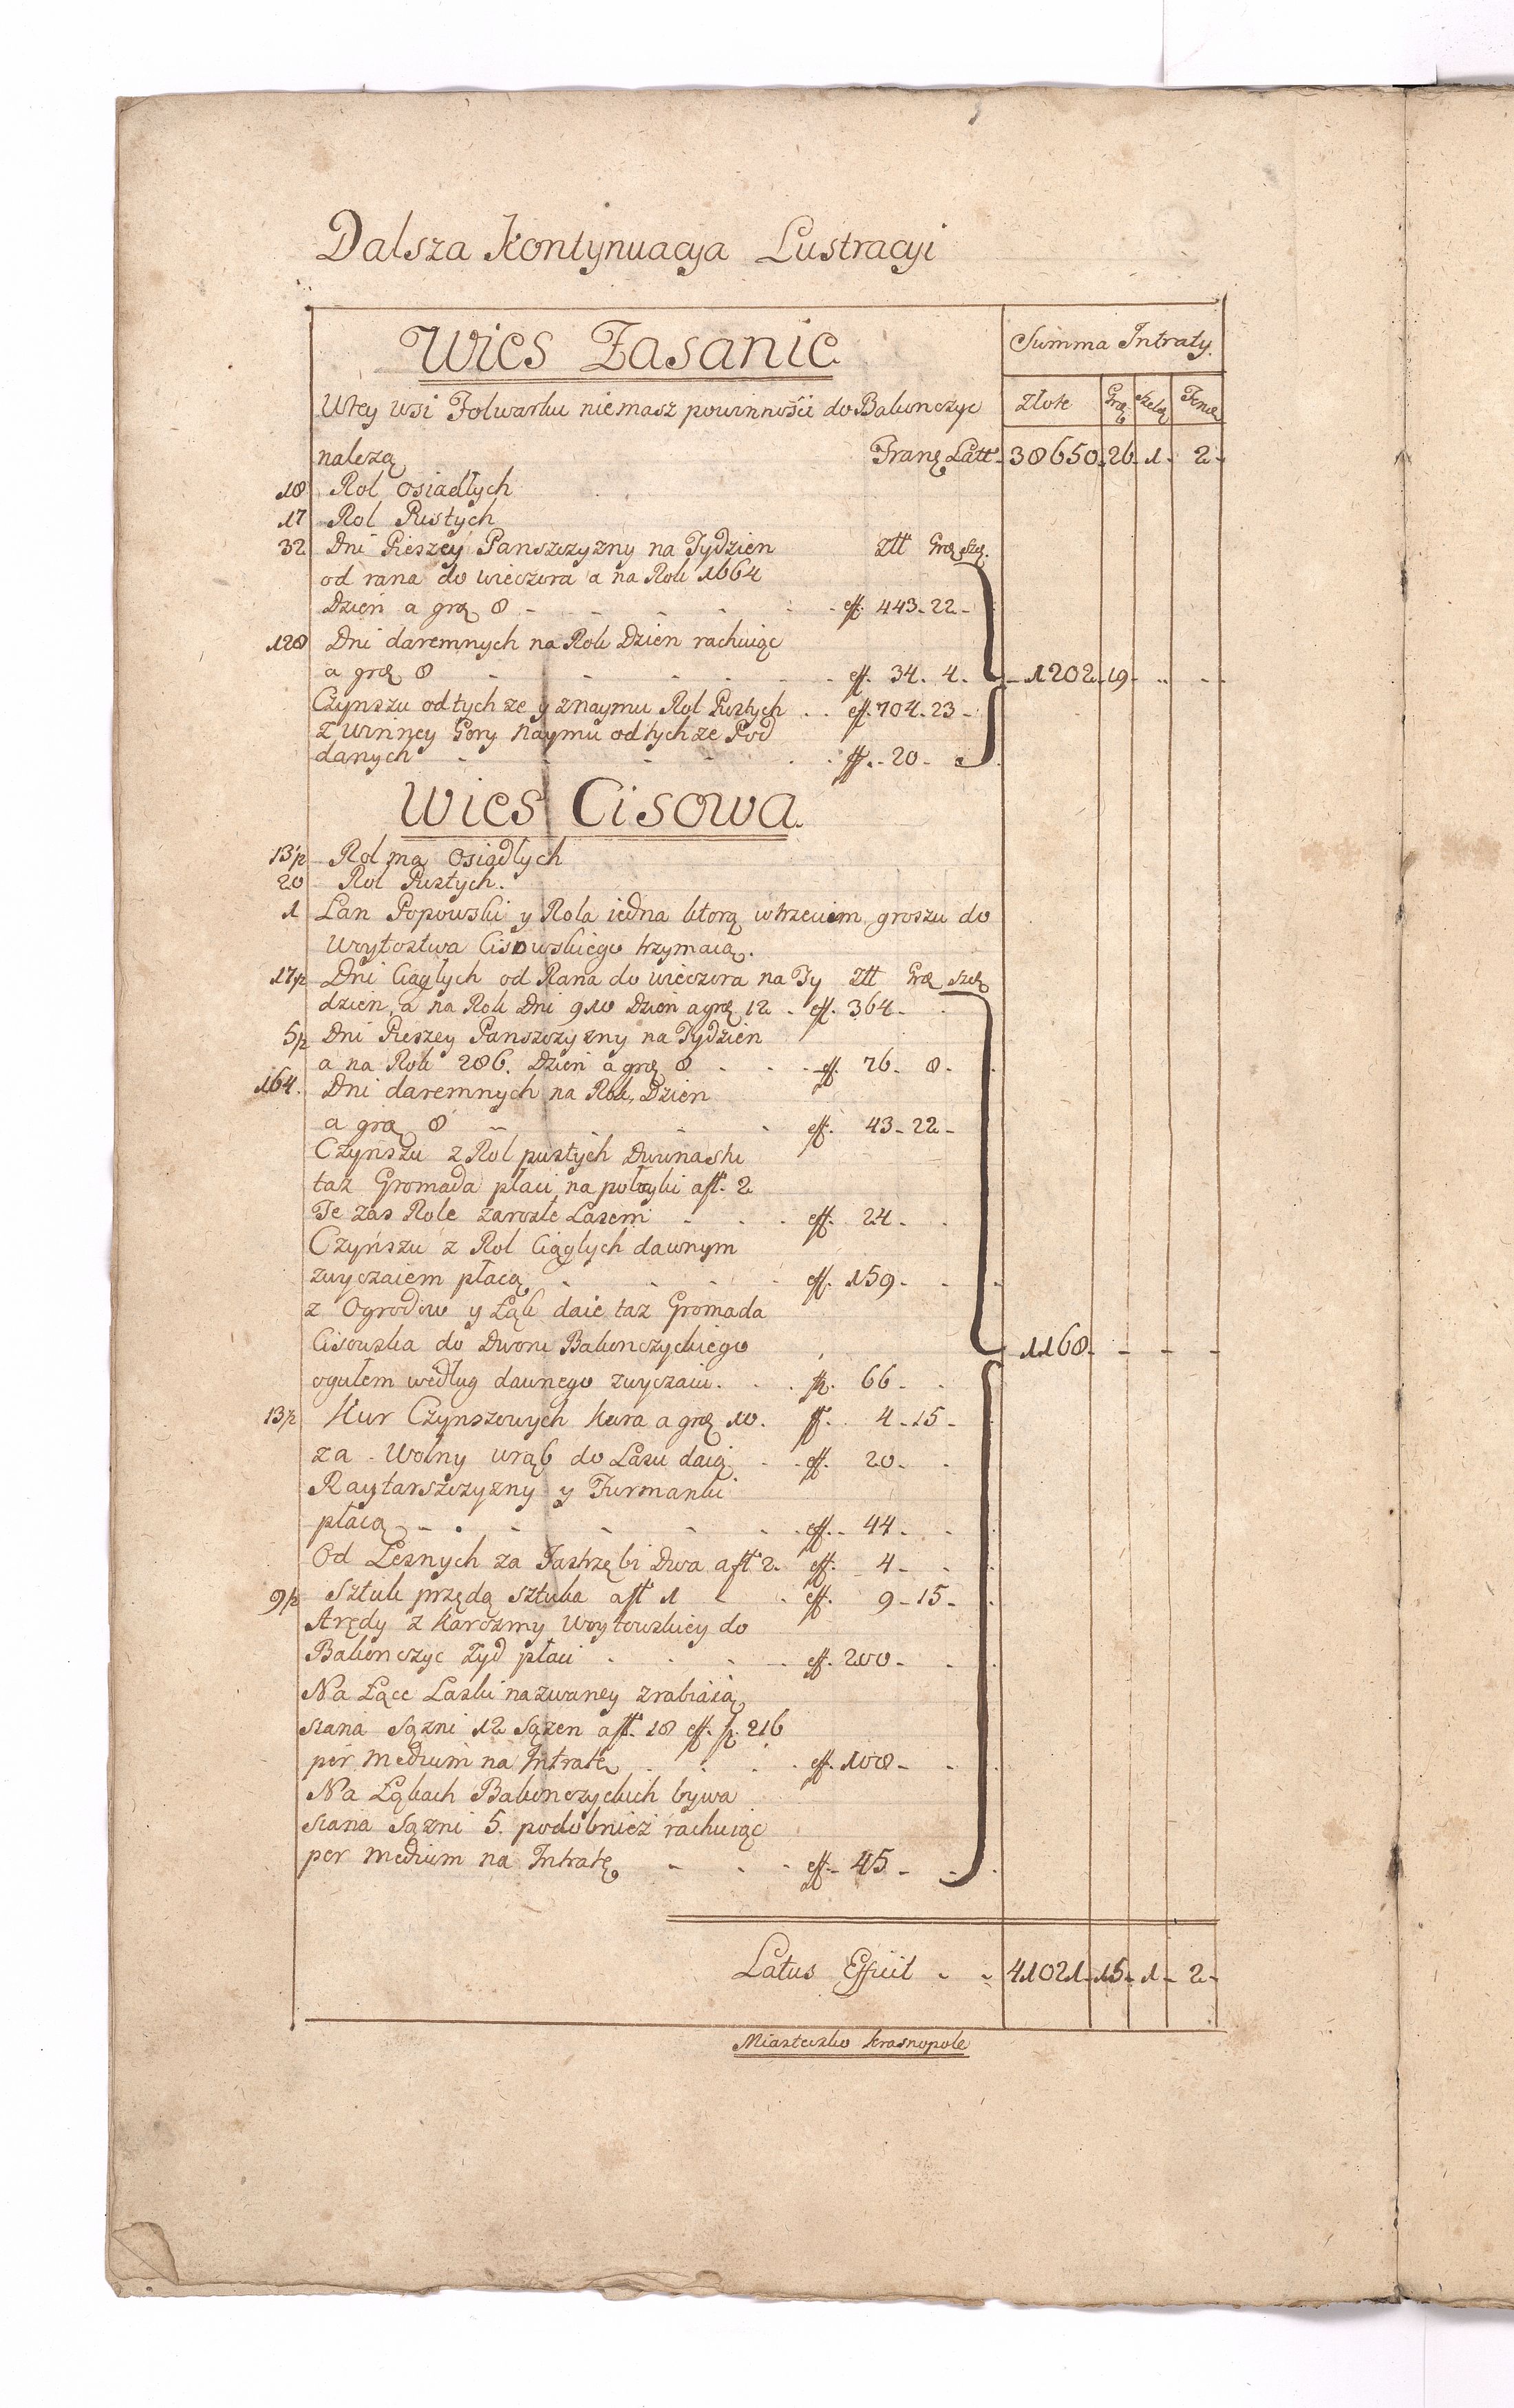 Dalsza Kontynuacya Lustracyi
Wies Zasanie
Summa Intraty.
Wtey wsi Folwarku niemasz powinności do Bakonczyc
Złote Gro Szelą Fenů
nalezą
Transs Latt 38650. 26. 1. 2.
18 Rol osiadłych
17 Rol Pustych
32 Dni Pieszey Panszczyzny na Tydzien Ztt Gro Sze.
od rana do wieczora a na Rok 1664
Dzień a gro 8 - - - eff. 443. 22.
128 Dni daremnych na Rok Dzien rachuiąc
a gro 8 - - - eff. 34. 4. - 1202. 19.
Czynszu od tychze y z naymu Rol Pustych . . eff. 704. 23 -
z Winney Gory Naymu od tychze Pod
danych - - - ff. - 20 -
Wies Cisowa.
13½ Rol mą Osiadłych
20 Rol Pustych.
1 Lan Popowski y Rola iedna ktorą w trzecim groszu do
Woytostwa Cisowskiego trzymaią.
17½ Dni Ciągłych od Rana do wieczora na Ty Ztt Gro Sze
dzien, a na Rok Dni 910 Dzien a gro 12 . eff. 364.
5½ Dni Pieszey Panszczyzny na Tydzien
a na Rok 286. Dzien a gro 8 . . . eff. 76. 8.
164. Dni daremnych na Rok, Dzien
a gro 8 - - - eff. 43. 22 -
Czynszu z Rol pustych Dwunastu
taz Gromada płaci na połoyki a ff. 2
Te zas Role zarosłe Lasem . . . eff. 24.
Czyńszu z Rol Ciągłych dawnym
zwyczaiem płacą - - - eff. 159.
z Ogrodow y Łąk daie taz Gromada
Cisowska do Dworu Bakonczyckiego 1168. - - -
ogułem według dawnego zwyczaiu. . . ff. 66 -
13½ Kur Czynszowych kura a gro 10. ff. 4. 15 -
za Wolny wrąb do Lasu daią . . eff. 20.
Raytarszczyzny y Furmanki
płacą - - - eff. 44.
Od Lesnych za Jastrzębi Dwa a ff. 2. eff. 4 -
9½ Sztuk przędą sztuka a ff. 1 . eff. 9 - 15 -
Arędy z Karczmy Woytowskiey do
Bakonczyc Zyd płaci . . . eff. 200 -
Na Łące Laski nazwaney zrabiaią
siana Sązni 12 Sązen a ff. 18 eff. f. 216
per medium na Intratę . . . eff. 108 -
Na Łąkach Bakonczyckich bywa
siana Sązni 5. podobniez rachuiąc
per medium na Intratę - - - eff. 45 -
Latus Efficit - - 41021. 15. 1. 2.
Miasteczko Krasnopole